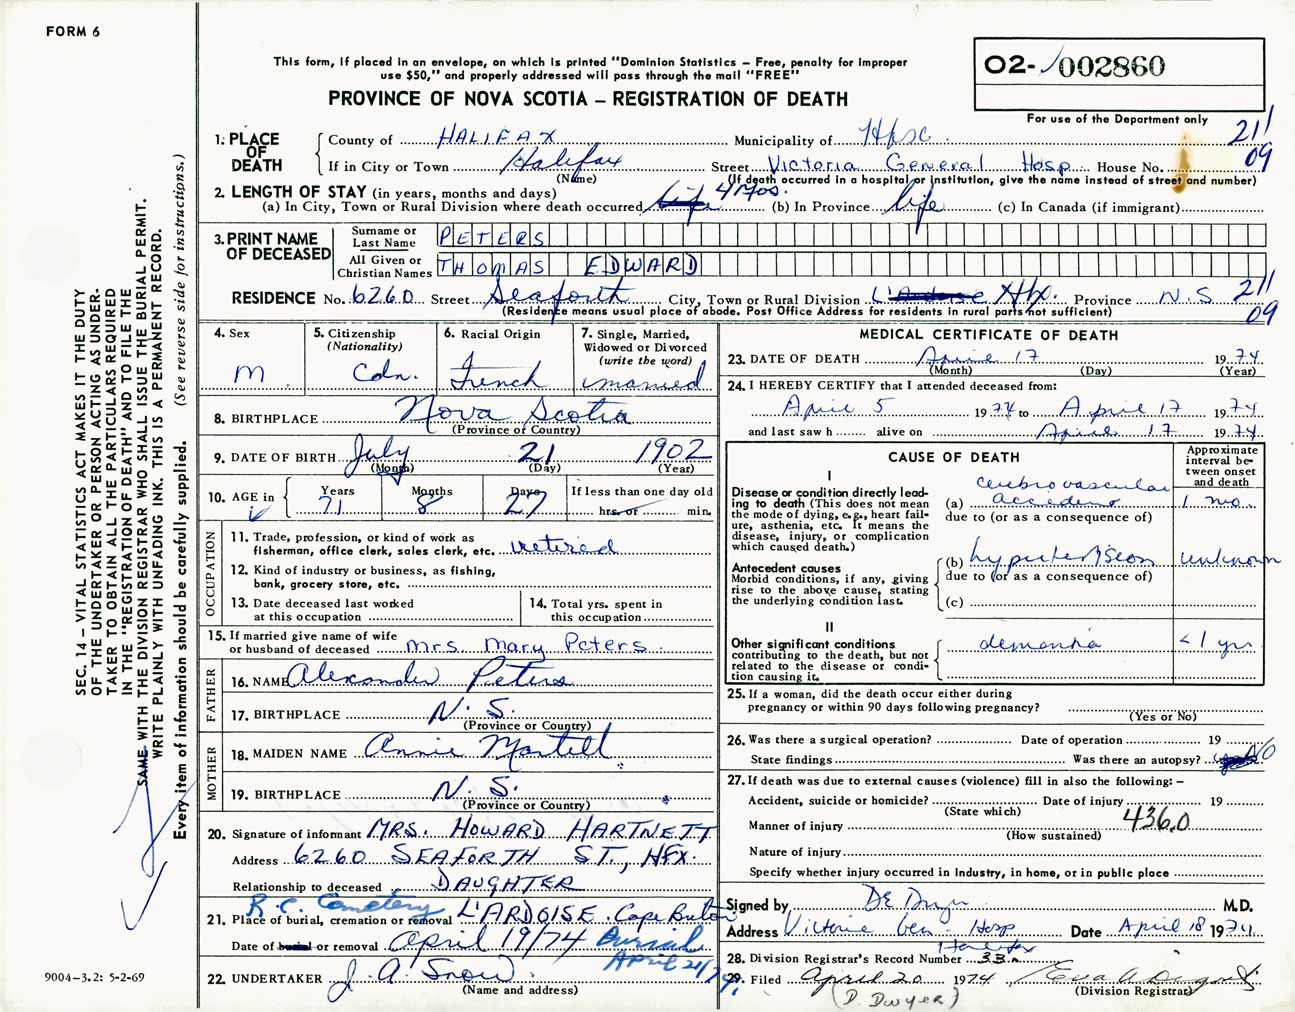 FORM 6
This form, if placed in an envelope, on which is printed "Dominion Statistics – Free, penalty for improper
use $50," and properly addressed will pass through the mail "FREE"
PROVINCE OF NOVA SCOTIA – REGISTRATION OF DEATH
02- 002860
For use of the Department only
211
09
1. PLACE OF DEATH
County of HALIFAX Municipality of Hfx
If in City or Town Halifax Street Victoria General Hosp House No.
(Name) (If death occurred in a hospital or institution, give the name instead of street and number)
2. LENGTH OF STAY (in years, months and days)
(a) In City, Town or Rural Division where death occurred life 4 Mos. (b) In Province life (c) In Canada (if immigrant)
3. PRINT NAME OF DECEASED
Surname or Last Name PETERS
All Given or Christian Names THOMAS EDWARD
RESIDENCE No. 6260 Street Seaforth City, Town or Rural Division L'Ardoise Hfx. Province N.S
211
09
(Residence means usual place of abode. Post Office Address for residents in rural parts not sufficient)
4. Sex
M
5. Citizenship
(Nationality)
Cdn.
6. Racial Origin
French
7. Single, Married,
Widowed or Divorced
(write the word)
married
8. BIRTHPLACE Nova Scotia
(Province or Country)
9. DATE OF BIRTH July 21 1902
(Month) (Day) (Year)
10. AGE in
Years Months Days If less than one day old
71 8 27 hrs. or min.
OCCUPATION
11. Trade, profession, or kind of work as
fisherman, office clerk, sales clerk, etc. retired
12. Kind of industry or business, as fishing,
bank, grocery store, etc.
13. Date deceased last worked
at this occupation
14. Total yrs. spent in
this occupation
15. If married give name of wife
or husband of deceased Mrs. Mary Peters
FATHER
16. NAME Alexander Peters
17. BIRTHPLACE N. S.
(Province or Country)
MOTHER
18. MAIDEN NAME Annie Martell
19. BIRTHPLACE N. S.
(Province or Country)
20. Signature of informant MRS. HOWARD HARTNETT
Address 6260 SEAFORTH ST., HFX.
Relationship to deceased DAUGHTER
R.C. Cemetery
21. Place of burial, cremation or removal L'ARDOISE. Cape Breton
Date of burial or removal April 19/74 Burial
April 21/74.
22. UNDERTAKER J. A. Snow
(Name and address)
MEDICAL CERTIFICATE OF DEATH
23. DATE OF DEATH April 17 1974
(Month) (Day) (Year)
24. I HEREBY CERTIFY that I attended deceased from:
April 5 1974 to April 17 1974
and last saw h alive on April 17 1974
CAUSE OF DEATH
Approximate
interval be-
tween onset
and death
I
Disease or condition directly lead-
ing to death (This does not mean
the mode of dying, e.g., heart fail-
ure, asthenia, etc. It means the
disease, injury, or complication
which caused death.)
cerebrovascular
(a) accident 1 mo.
due to (or as a consequence of)
Antecedent causes
Morbid conditions, if any, giving
rise to the above cause, stating
the underlying condition last.
(b) hypertension unknown
due to (or as a consequence of)
(c)
II
Other significant conditions
contributing to the death, but not
related to the disease or condi-
tion causing it.
dementia <1 yr.
25. If a woman, did the death occur either during
pregnancy or within 90 days following pregnancy?
(Yes or No)
26. Was there a surgical operation? Date of operation 19
State findings Was there an autopsy? NO
27. If death was due to external causes (violence) fill in also the following: –
Accident, suicide or homicide? Date of injury 19
(State which)
Manner of injury 436.0
(How sustained)
Nature of injury
Specify whether injury occurred in industry, in home, or in public place
Signed by M.D.
Address Victoria Gen. Hosp Date April 18 1974
Halifax
28. Division Registrar's Record Number 33
29. Filed April 20 1974 Eva
(D. Dwyer) (Division Registrar)
SEC. 14 – VITAL STATISTICS ACT MAKES IT THE DUTY
OF THE UNDERTAKER OR PERSON ACTING AS UNDER-
TAKER TO OBTAIN ALL THE PARTICULARS REQUIRED
IN THE "REGISTRATION OF DEATH" AND TO FILE THE
SAME WITH THE DIVISION REGISTRAR WHO SHALL ISSUE THE BURIAL PERMIT.
WRITE PLAINLY WITH UNFADING INK. THIS IS A PERMANENT RECORD.
Every item of information should be carefully supplied. (See reverse side for instructions.)
9004-3.2: 5-2-69